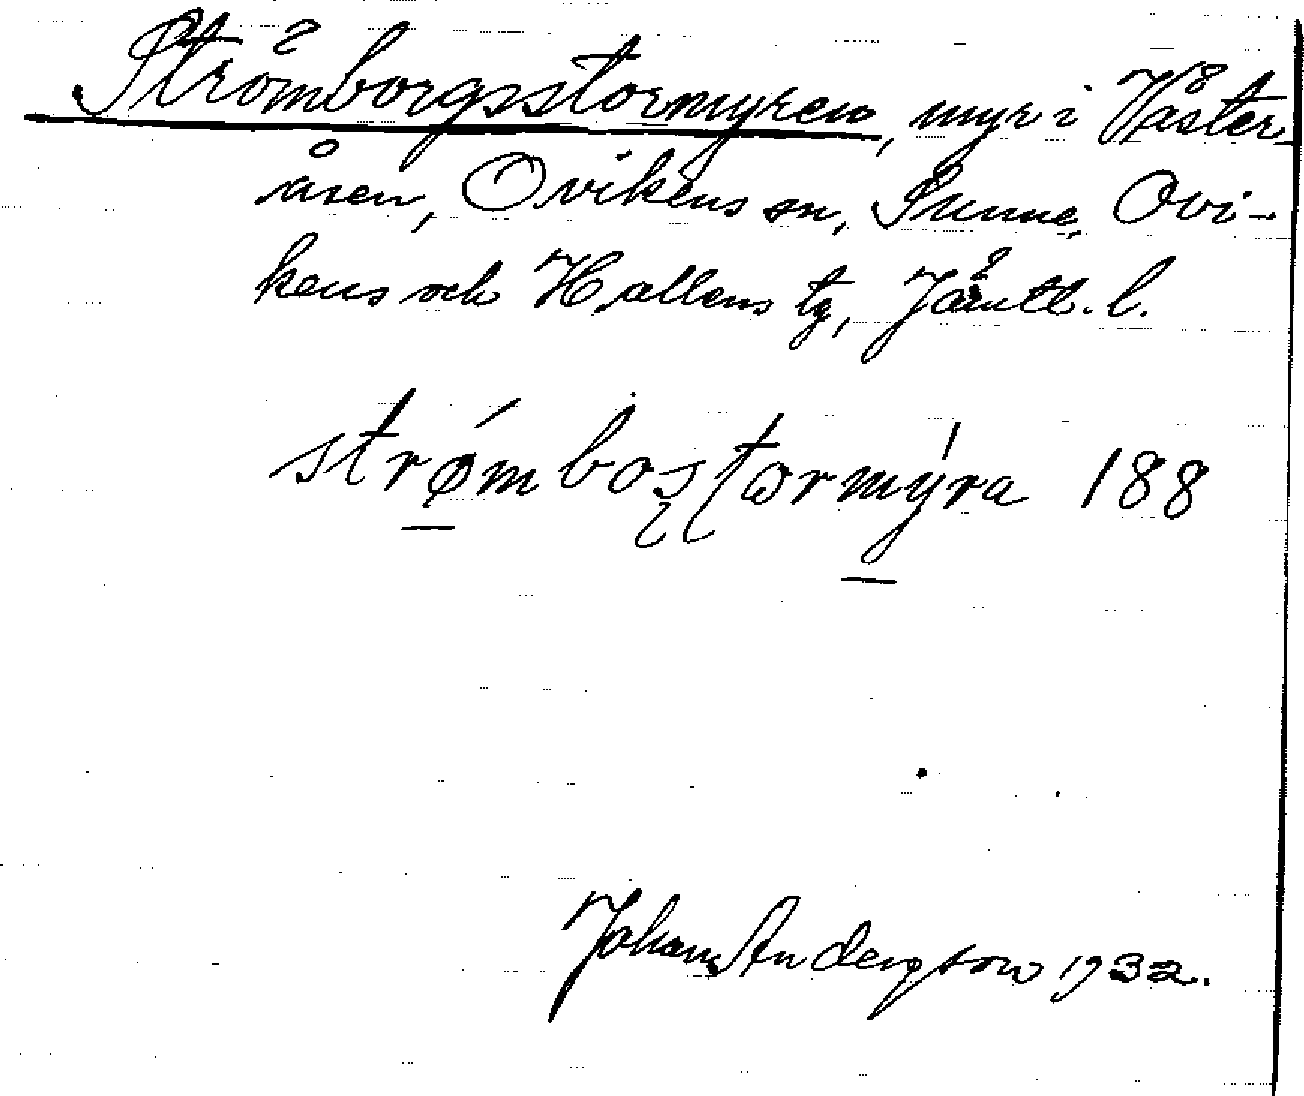 Strömborgsstormyren, myr i Väster-
åsen, Ovikens sn, Sunne, Ovi-
kens och Hallens tg, Jämtl. l.
strǿ̱mbos̨t̨ormý̱ra 188
Johan Anderson 1932.